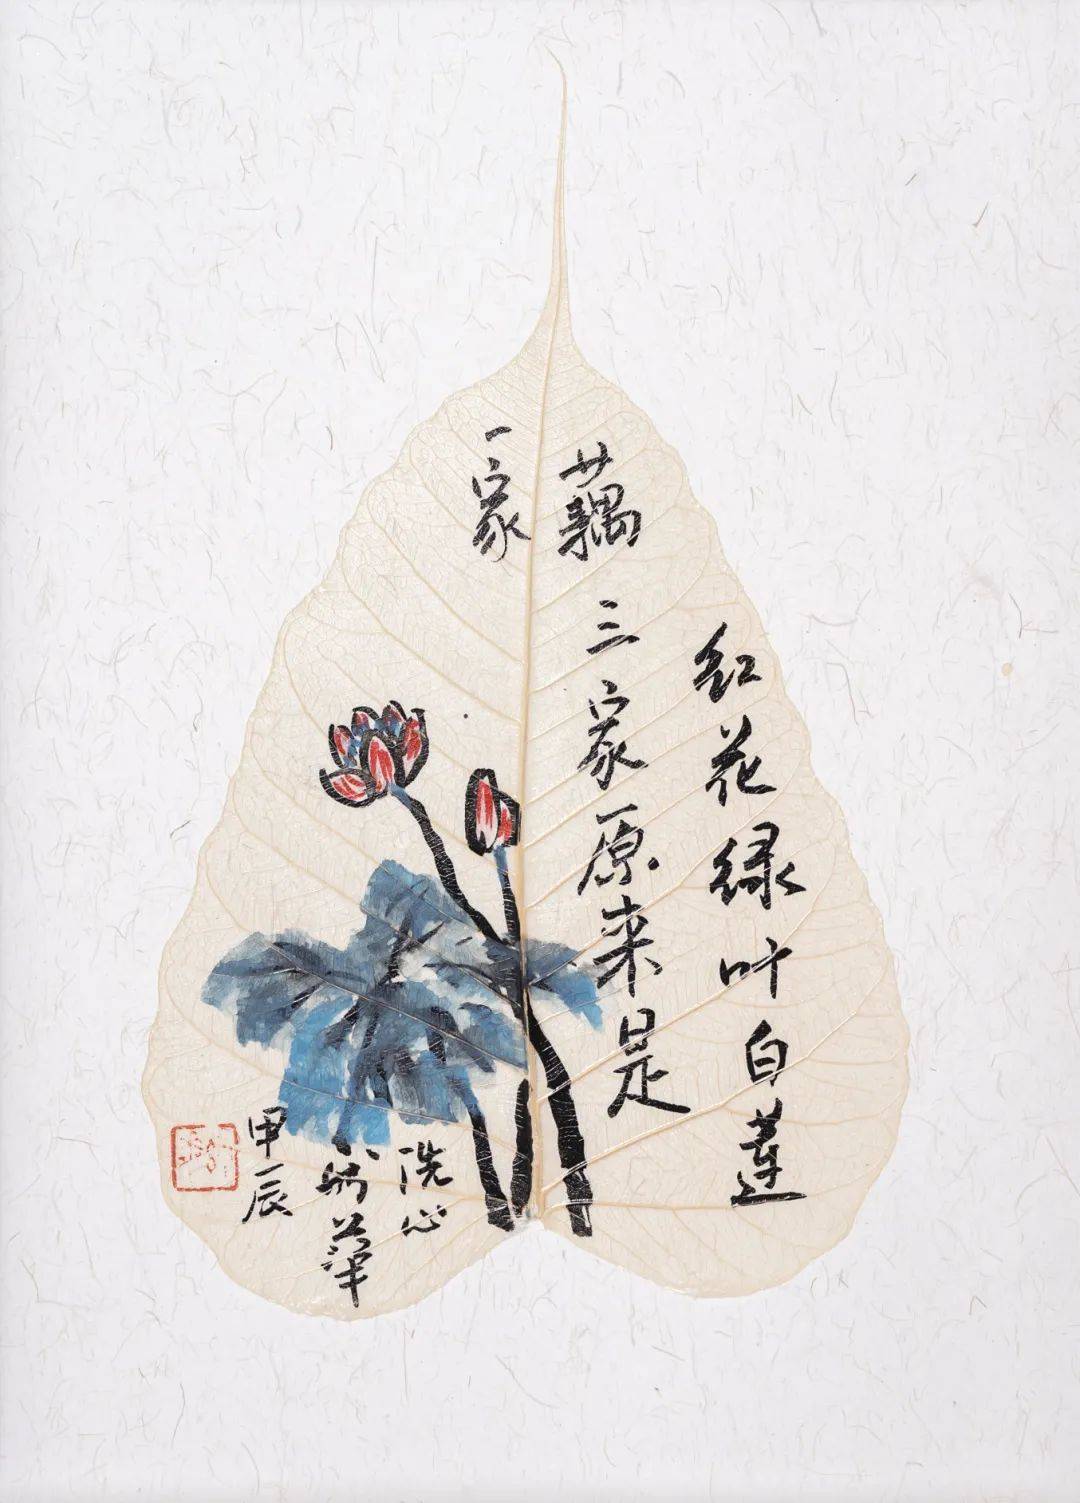 红花绿叶白莲
藕三家原来是
一家
洗心
華
甲辰